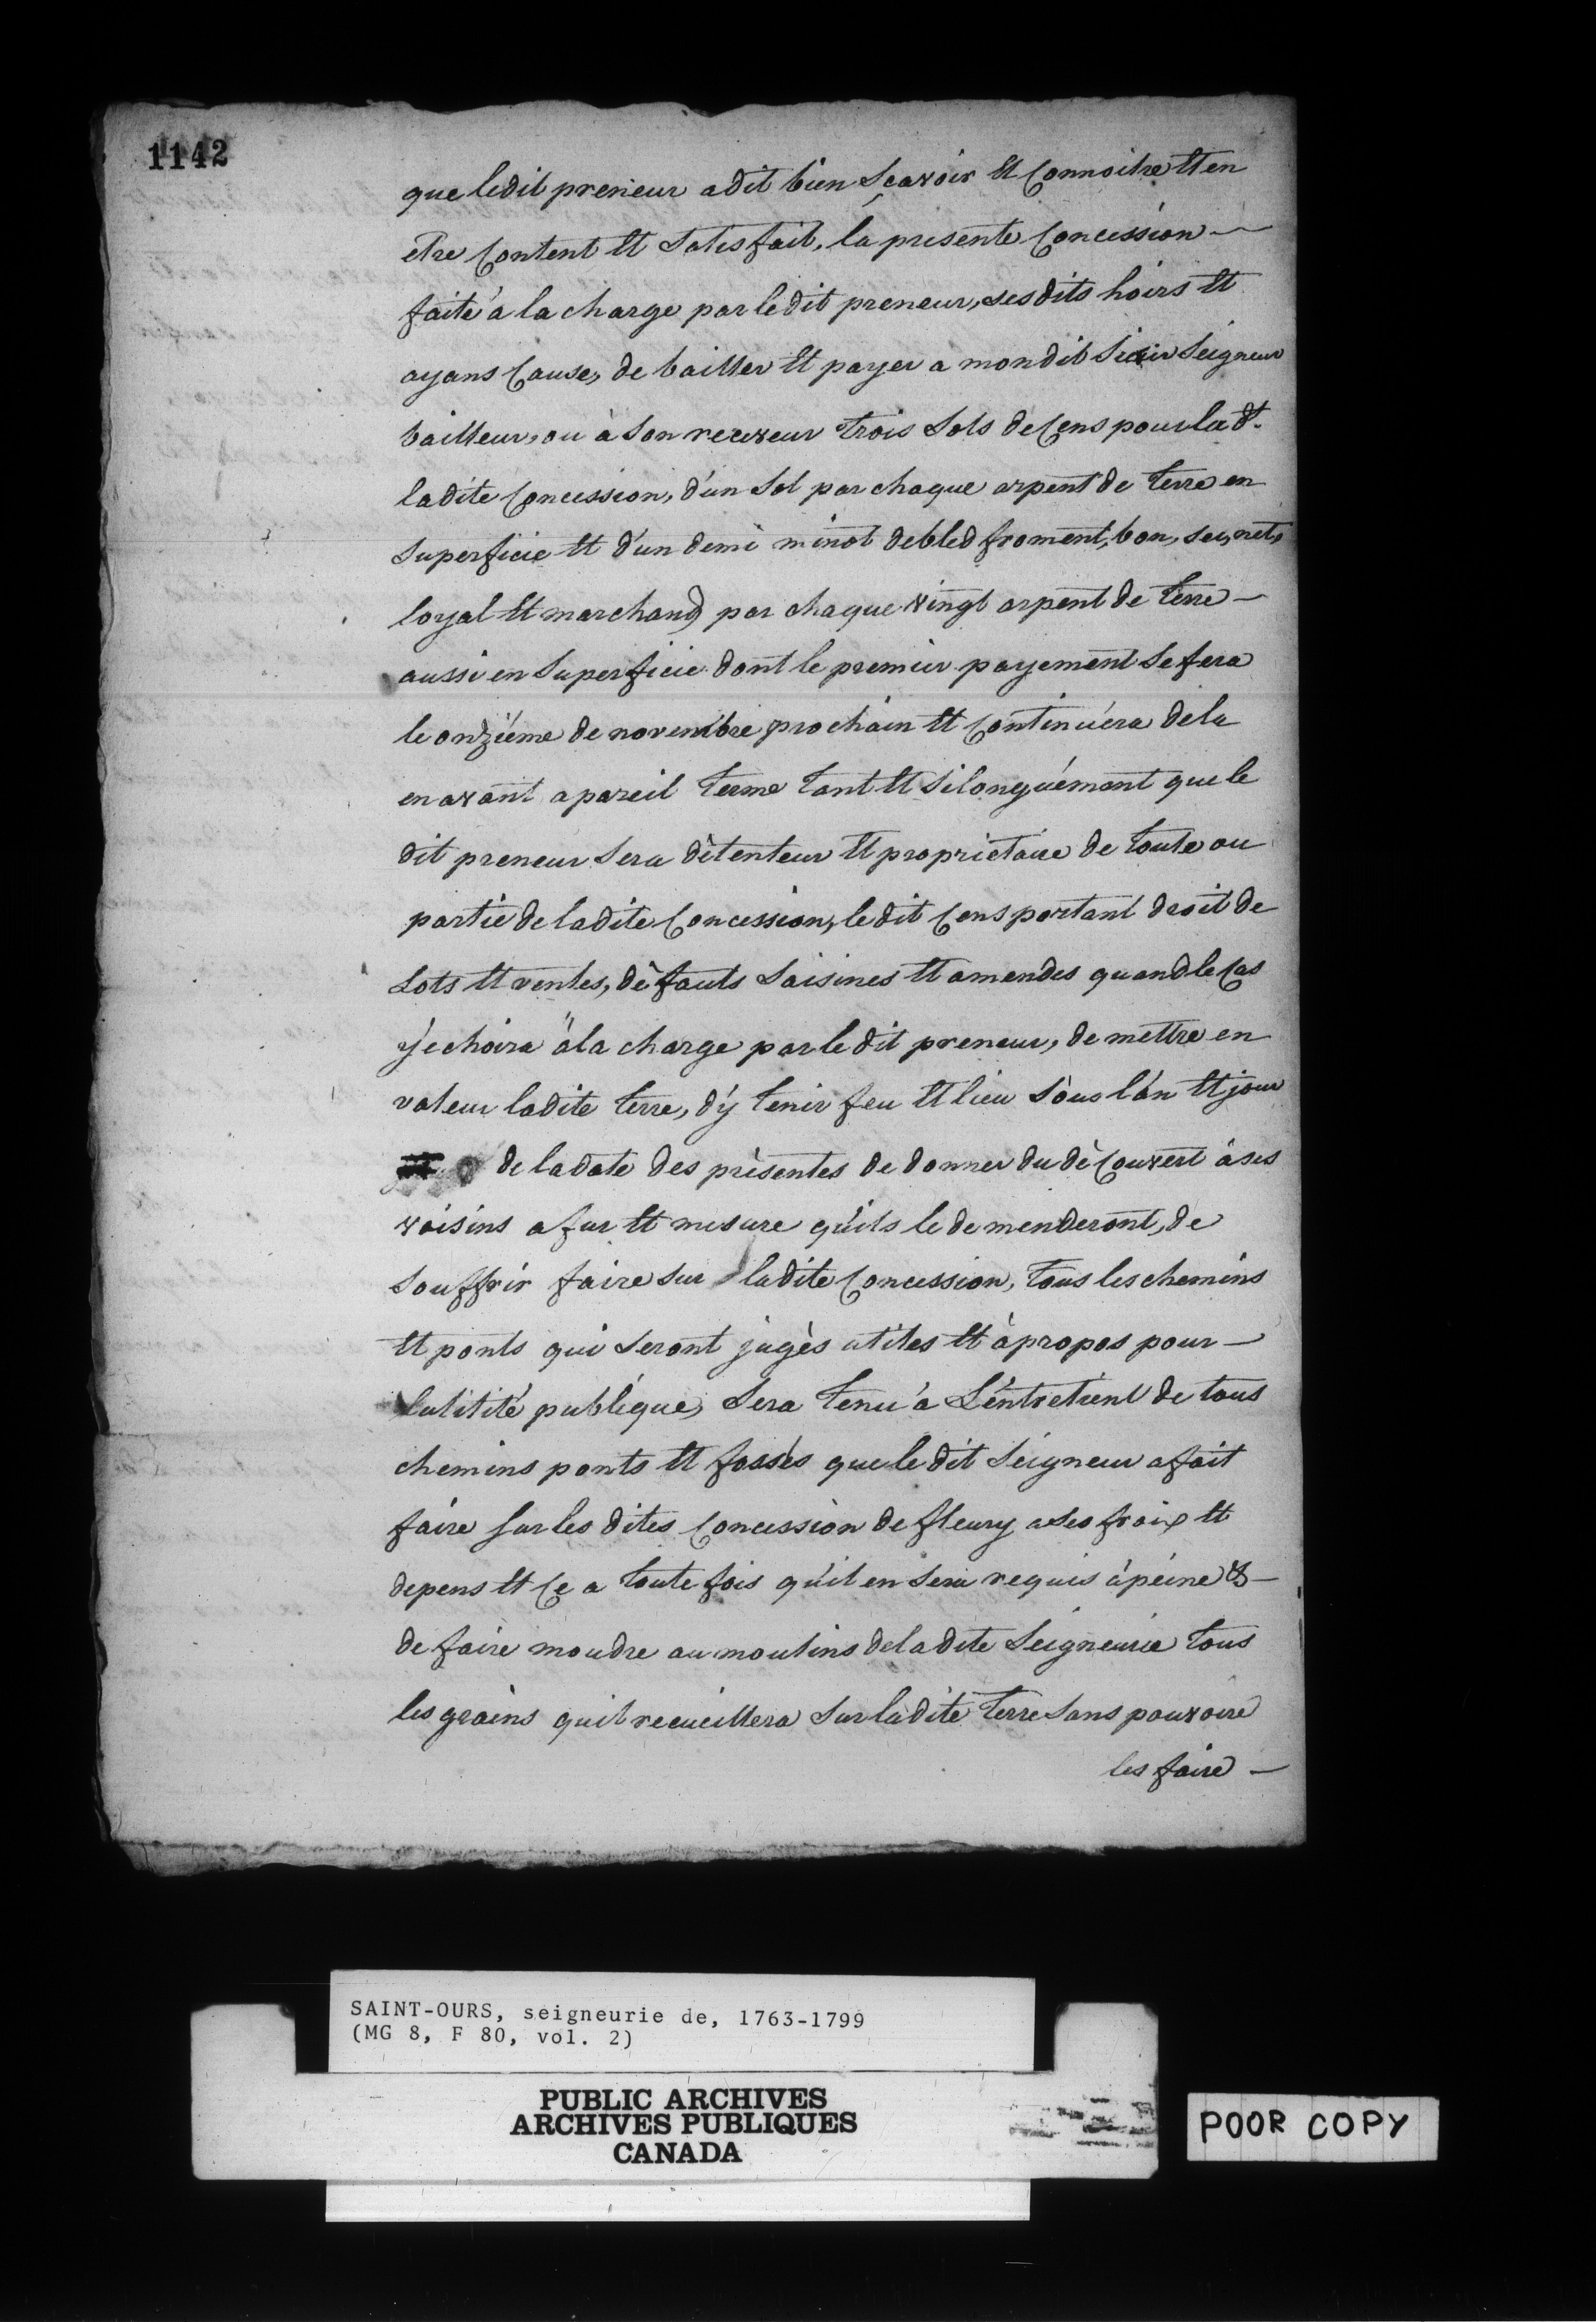 1142
que ledit preneur a dit bien Sçavoir Et Connoitre Et en
etre Content Et Satisfait, la presente Concession —
faite á la charge par le dit preneur, ses dits hoirs Et
ayans Cause, de bailler Et payer a mon dit Sieur Seigneur
bailleur, ou à Son receveur trois Sols de Cens pour la dt.
ladite Concession, d'un Sol par chaque arpent de terre en
Superficie Et d'un demi minot de bled froment, bon, sec, net,
loyal Et marchand par chaque vingt arpent de terre —
aussi en Superficie dont le premier payement Se fera
le onziéme de novembre prochain Et Continuéra de la
en avant a pareil terme tant Et Si longuément que le
dit preneur Sera dètenteur Et proprietaire de toute ou
partie de ladite Concession, le dit Cens portant droit de
Lots Et ventes, dèfauts Saisines Et amendes quand le Cas
y échoira á la charge par le dit preneur, de mettre en
valeur ladite terre, d'y tenir feu Et lieu Sous l'an Et jour
de la date des prèsentes de donner du dècouvert à ses
voisins a fur Et mesure qu'ils le demenderont, de
Souffrir faire sur ladite Concession, tous les chemins
Et ponts qui Seront jugès utiles Et à propos pour —
lutilité publique, Sera tenu á L'éntretient de tous
chemins ponts Et fossès que le dit Seigneur a fait
faire Sur les dites Concession de fleury a Ses fraix Et
depens Et Ce a toute fois qu'il en Sera requis à peine &—
de faire moudre au moulins de la dite Seigneurie tous
les grains quil recueillera Sur ladite terre Sans pouvoire
les faire —
SAINT-OURS, seigneurie de, 1763-1799
(MG 8, F 80, vol. 2)
PUBLIC ARCHIVES
ARCHIVES PUBLIQUES
CANADA
POOR COPY